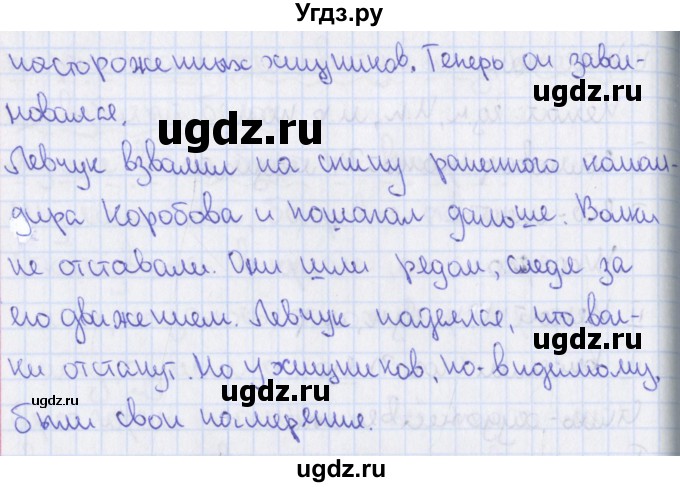 Угдз.ру
настороженных хищников. Теперь он завол-
новался.
ugdz.ru ugdz.ru
Левчук взвалил на спину раненного коман-
дира Коробова и пошагал дальше. Волки
ugdz.ru
не отставали. Они шли рядом, следя за
его движением. Левчук надеялся, что вол-
ugdz.ru ugdz.ru
ки отстанут. Но у хищников, по-видимому,
были свои намерения.
ugdz.ru
ugdz.ru